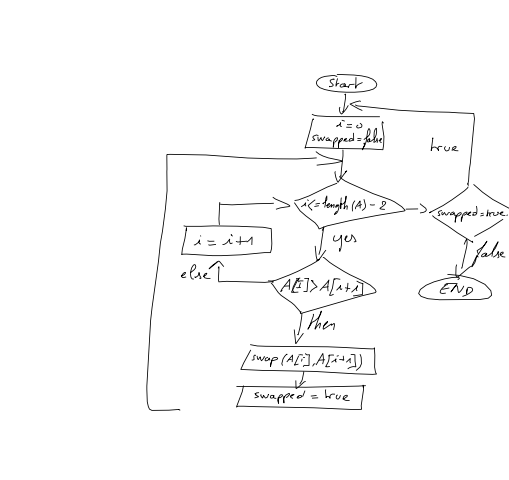 start
i = 0
swapped = false
true
i <= length(A) - 2
swapped = true
yes
i = i+1
false
else
A[I] > A[i+i]
END
then
swap (A[i], A[i+1])
swapped = true